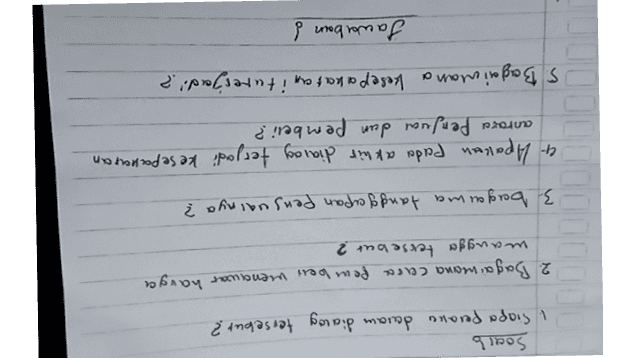 Soal b
1. Siapa pelaku dalam dialog tersebut?
2. Bagaimana cara pembeli menawar harga
mangga tersebut?
3. bagaima tanggapan penjualnya?
4. Apakah pada akhir dialog terjadi kesepakatan
antara penjual dan pembeli?
5 Bagaimana kesepakatan itu terjadi?
Jawaban